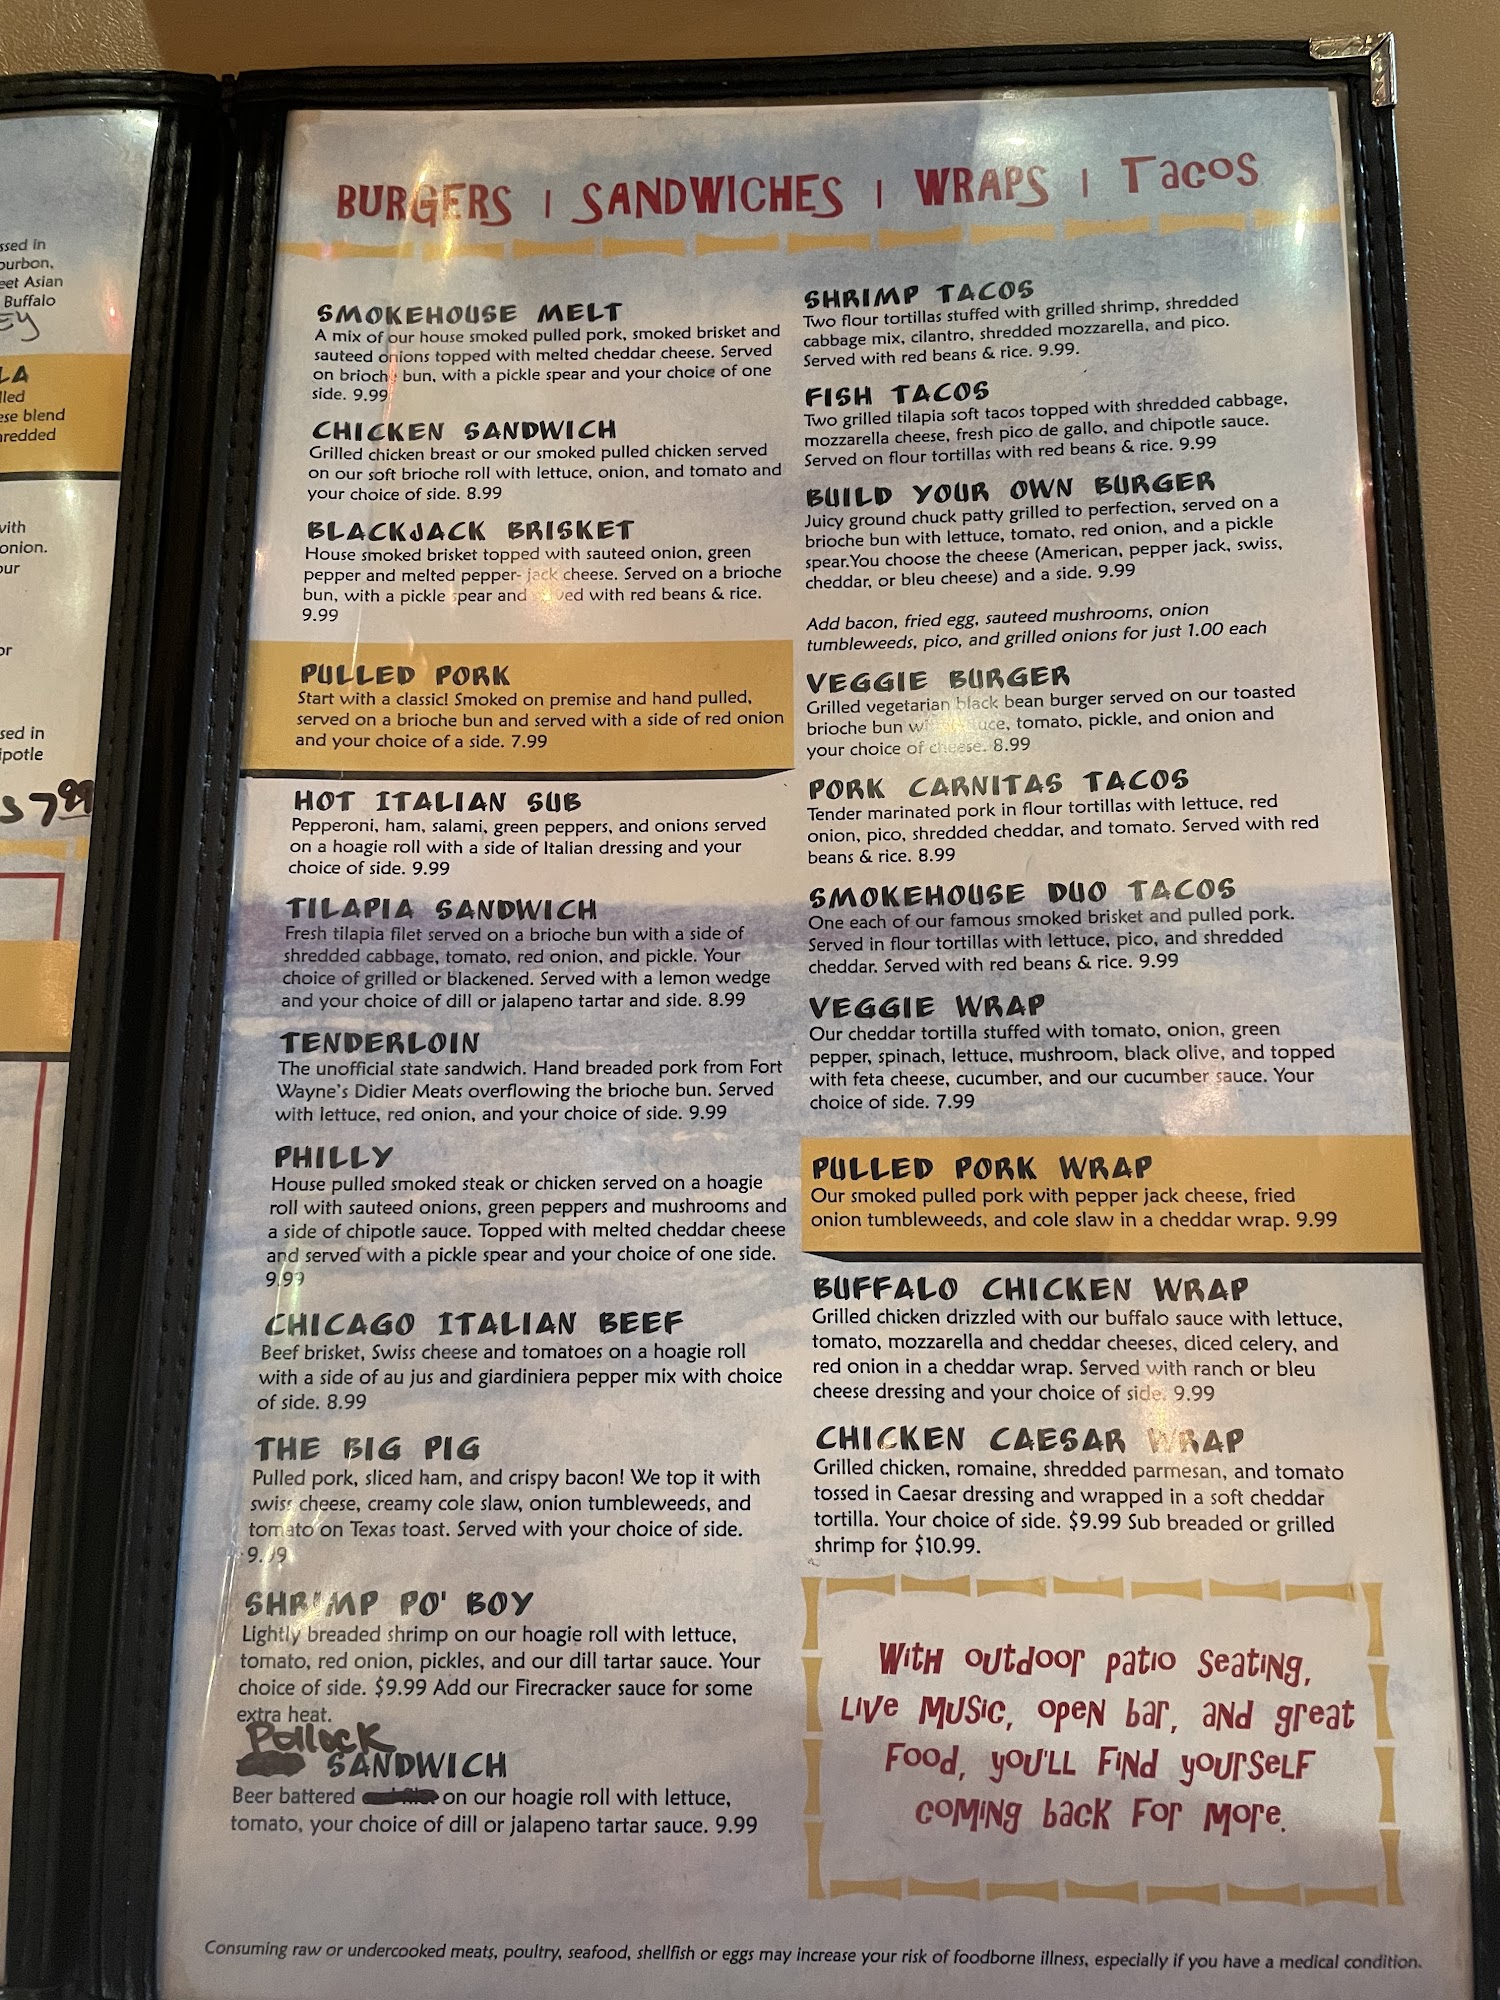 ssed in
ourbon,
eet Asian
Buffalo
EY
LA
lled
ese blend
hredded
with
onion.
our
or
sed in
ipotle
S 7.99
BURGERS | SANDWICHES | WRAPS | Tacos
SMOKEHOUSE MELT
A mix of our house smoked pulled pork, smoked brisket and
sauteed onions topped with melted cheddar cheese. Served
on brioche bun, with a pickle spear and your choice of one
side. 9.99
CHICKEN SANDWICH
Grilled chicken breast or our smoked pulled chicken served
on our soft brioche roll with lettuce, onion, and tomato and
your choice of side. 8.99
BLACKJACK BRISKET
House smoked brisket topped with sauteed onion, green
pepper and melted pepper- jack cheese. Served on a brioche
bun, with a pickle spear and served with red beans & rice.
9.99
PULLED PORK
Start with a classic! Smoked on premise and hand pulled,
served on a brioche bun and served with a side of red onion
and your choice of a side. 7.99
HOT ITALIAN SUB
Pepperoni, ham, salami, green peppers, and onions served
on a hoagie roll with a side of Italian dressing and your
choice of side. 9.99
TILAPIA SANDWICH
Fresh tilapia filet served on a brioche bun with a side of
shredded cabbage, tomato, red onion, and pickle. Your
choice of grilled or blackened. Served with a lemon wedge
and your choice of dill or jalapeno tartar and side. 8.99
TENDERLOIN
The unofficial state sandwich. Hand breaded pork from Fort
Wayne's Didier Meats overflowing the brioche bun. Served
with lettuce, red onion, and your choice of side. 9.99
PHILLY
House pulled smoked steak or chicken served on a hoagie
roll with sauteed onions, green peppers and mushrooms and
a side of chipotle sauce. Topped with melted cheddar cheese
and served with a pickle spear and your choice of one side.
9.99
CHICAGO ITALIAN BEEF
Beef brisket, Swiss cheese and tomatoes on a hoagie roll
with a side of au jus and giardiniera pepper mix with choice
of side. 8.99
THE BIG PIG
Pulled pork, sliced ham, and crispy bacon! We top it with
swiss cheese, creamy cole slaw, onion tumbleweeds, and
tomato on Texas toast. Served with your choice of side.
9.99
SHRIMP PO' BOY
Lightly breaded shrimp on our hoagie roll with lettuce,
tomato, red onion, pickles, and our dill tartar sauce. Your
choice of side. $9.99 Add our Firecracker sauce for some
extra heat.
Pollock
SANDWICH
Beer battered on our hoagie roll with lettuce,
tomato, your choice of dill or jalapeno tartar sauce. 9.99
SHRIMP TACOS
Two flour tortillas stuffed with grilled shrimp, shredded
cabbage mix, cilantro, shredded mozzarella, and pico.
Served with red beans & rice. 9.99.
FISH TACOS
Two grilled tilapia soft tacos topped with shredded cabbage,
mozzarella cheese, fresh pico de gallo, and chipotle sauce.
Served on flour tortillas with red beans & rice. 9.99
BUILD YOUR OWN BURGER
Juicy ground chuck patty grilled to perfection, served on a
brioche bun with lettuce, tomato, red onion, and a pickle
spear.You choose the cheese (American, pepper jack, swiss,
cheddar, or bleu cheese) and a side. 9.99
Add bacon, fried egg, sauteed mushrooms, onion
tumbleweeds, pico, and grilled onions for just 1.00 each
VEGGIE BURGER
Grilled vegetarian black bean burger served on our toasted
brioche bun with lettuce, tomato, pickle, and onion and
your choice of cheese. 8.99
PORK CARNITAS TACOS
Tender marinated pork in flour tortillas with lettuce, red
onion, pico, shredded cheddar, and tomato. Served with red
beans & rice. 8.99
SMOKEHOUSE DUO TACOS
One each of our famous smoked brisket and pulled pork.
Served in flour tortillas with lettuce, pico, and shredded
cheddar. Served with red beans & rice. 9.99
VEGGIE WRAP
Our cheddar tortilla stuffed with tomato, onion, green
pepper, spinach, lettuce, mushroom, black olive, and topped
with feta cheese, cucumber, and our cucumber sauce. Your
choice of side. 7.99
PULLED PORK WRAP
Our smoked pulled pork with pepper jack cheese, fried
onion tumbleweeds, and cole slaw in a cheddar wrap. 9.99
BUFFALO CHICKEN WRAP
Grilled chicken drizzled with our buffalo sauce with lettuce,
tomato, mozzarella and cheddar cheeses, diced celery, and
red onion in a cheddar wrap. Served with ranch or bleu
cheese dressing and your choice of side. 9.99
CHICKEN CAESAR WRAP
Grilled chicken, romaine, shredded parmesan, and tomato
tossed in Caesar dressing and wrapped in a soft cheddar
tortilla. Your choice of side. $9.99 Sub breaded or grilled
shrimp for $10.99.
With outdoor patio seating,
Live music, open bar, and great
food, you'll find yourself
coming back for more.
Consuming raw or undercooked meats, poultry, seafood, shellfish or eggs may increase your risk of foodborne illness, especially if you have a medical condition.